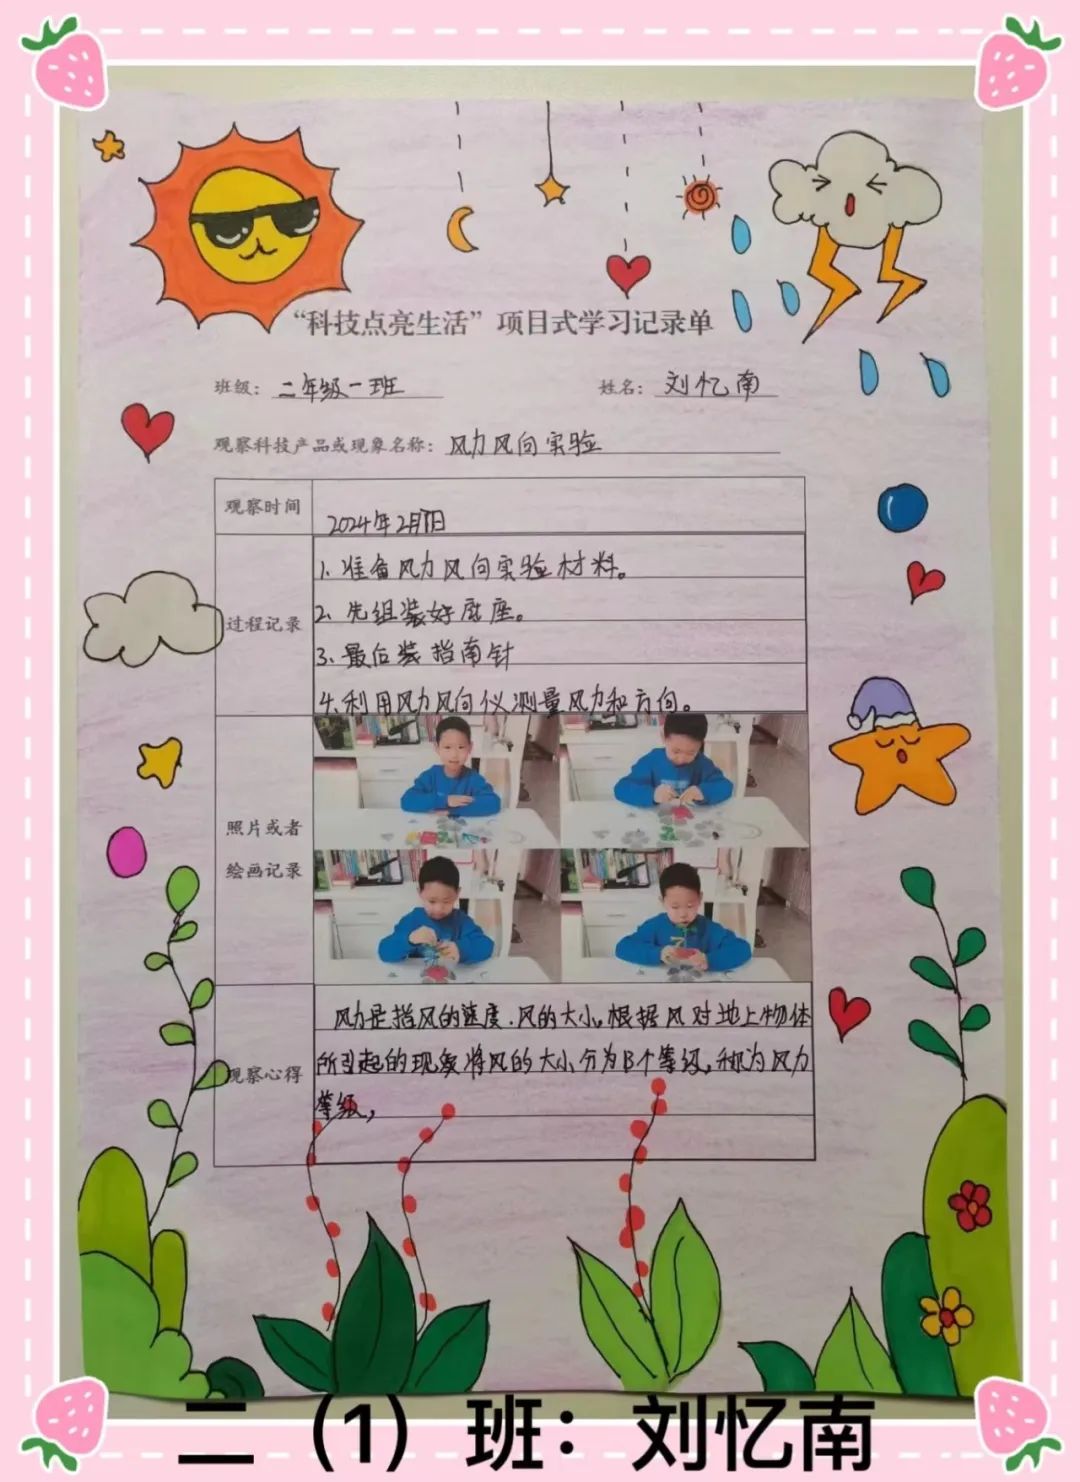 “科技点亮生活”项目式学习记录单
班级：二年级一班 姓名：刘忆南
观察科技产品或现象名称：风力风向实验
观察时间
2024年2月 日
过程记录
1.准备风力风向实验材料。
2.先组装好底座。
3.最后装指南针
4.利用风力风向仪测量风力和方向。
照片或者
绘画记录
观察心得
风力是指风的速度.风的大小。根据风对地上物体
所引起的现象将风的大小分为13个等级,称为风力
等级,
二（1）班：刘忆南